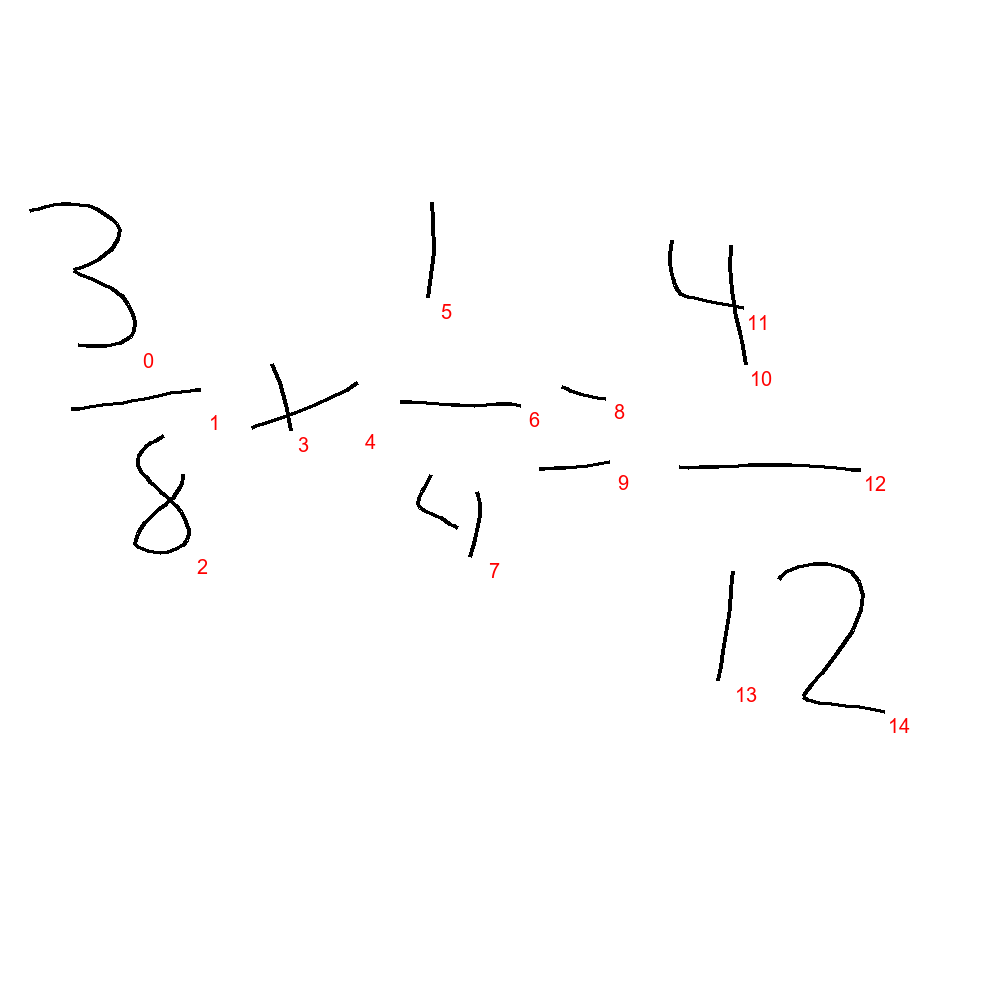 3/8 + 1/4 = 4/12
0 1 2 3 4 5 6 7 8 9 10 11 12 13 14